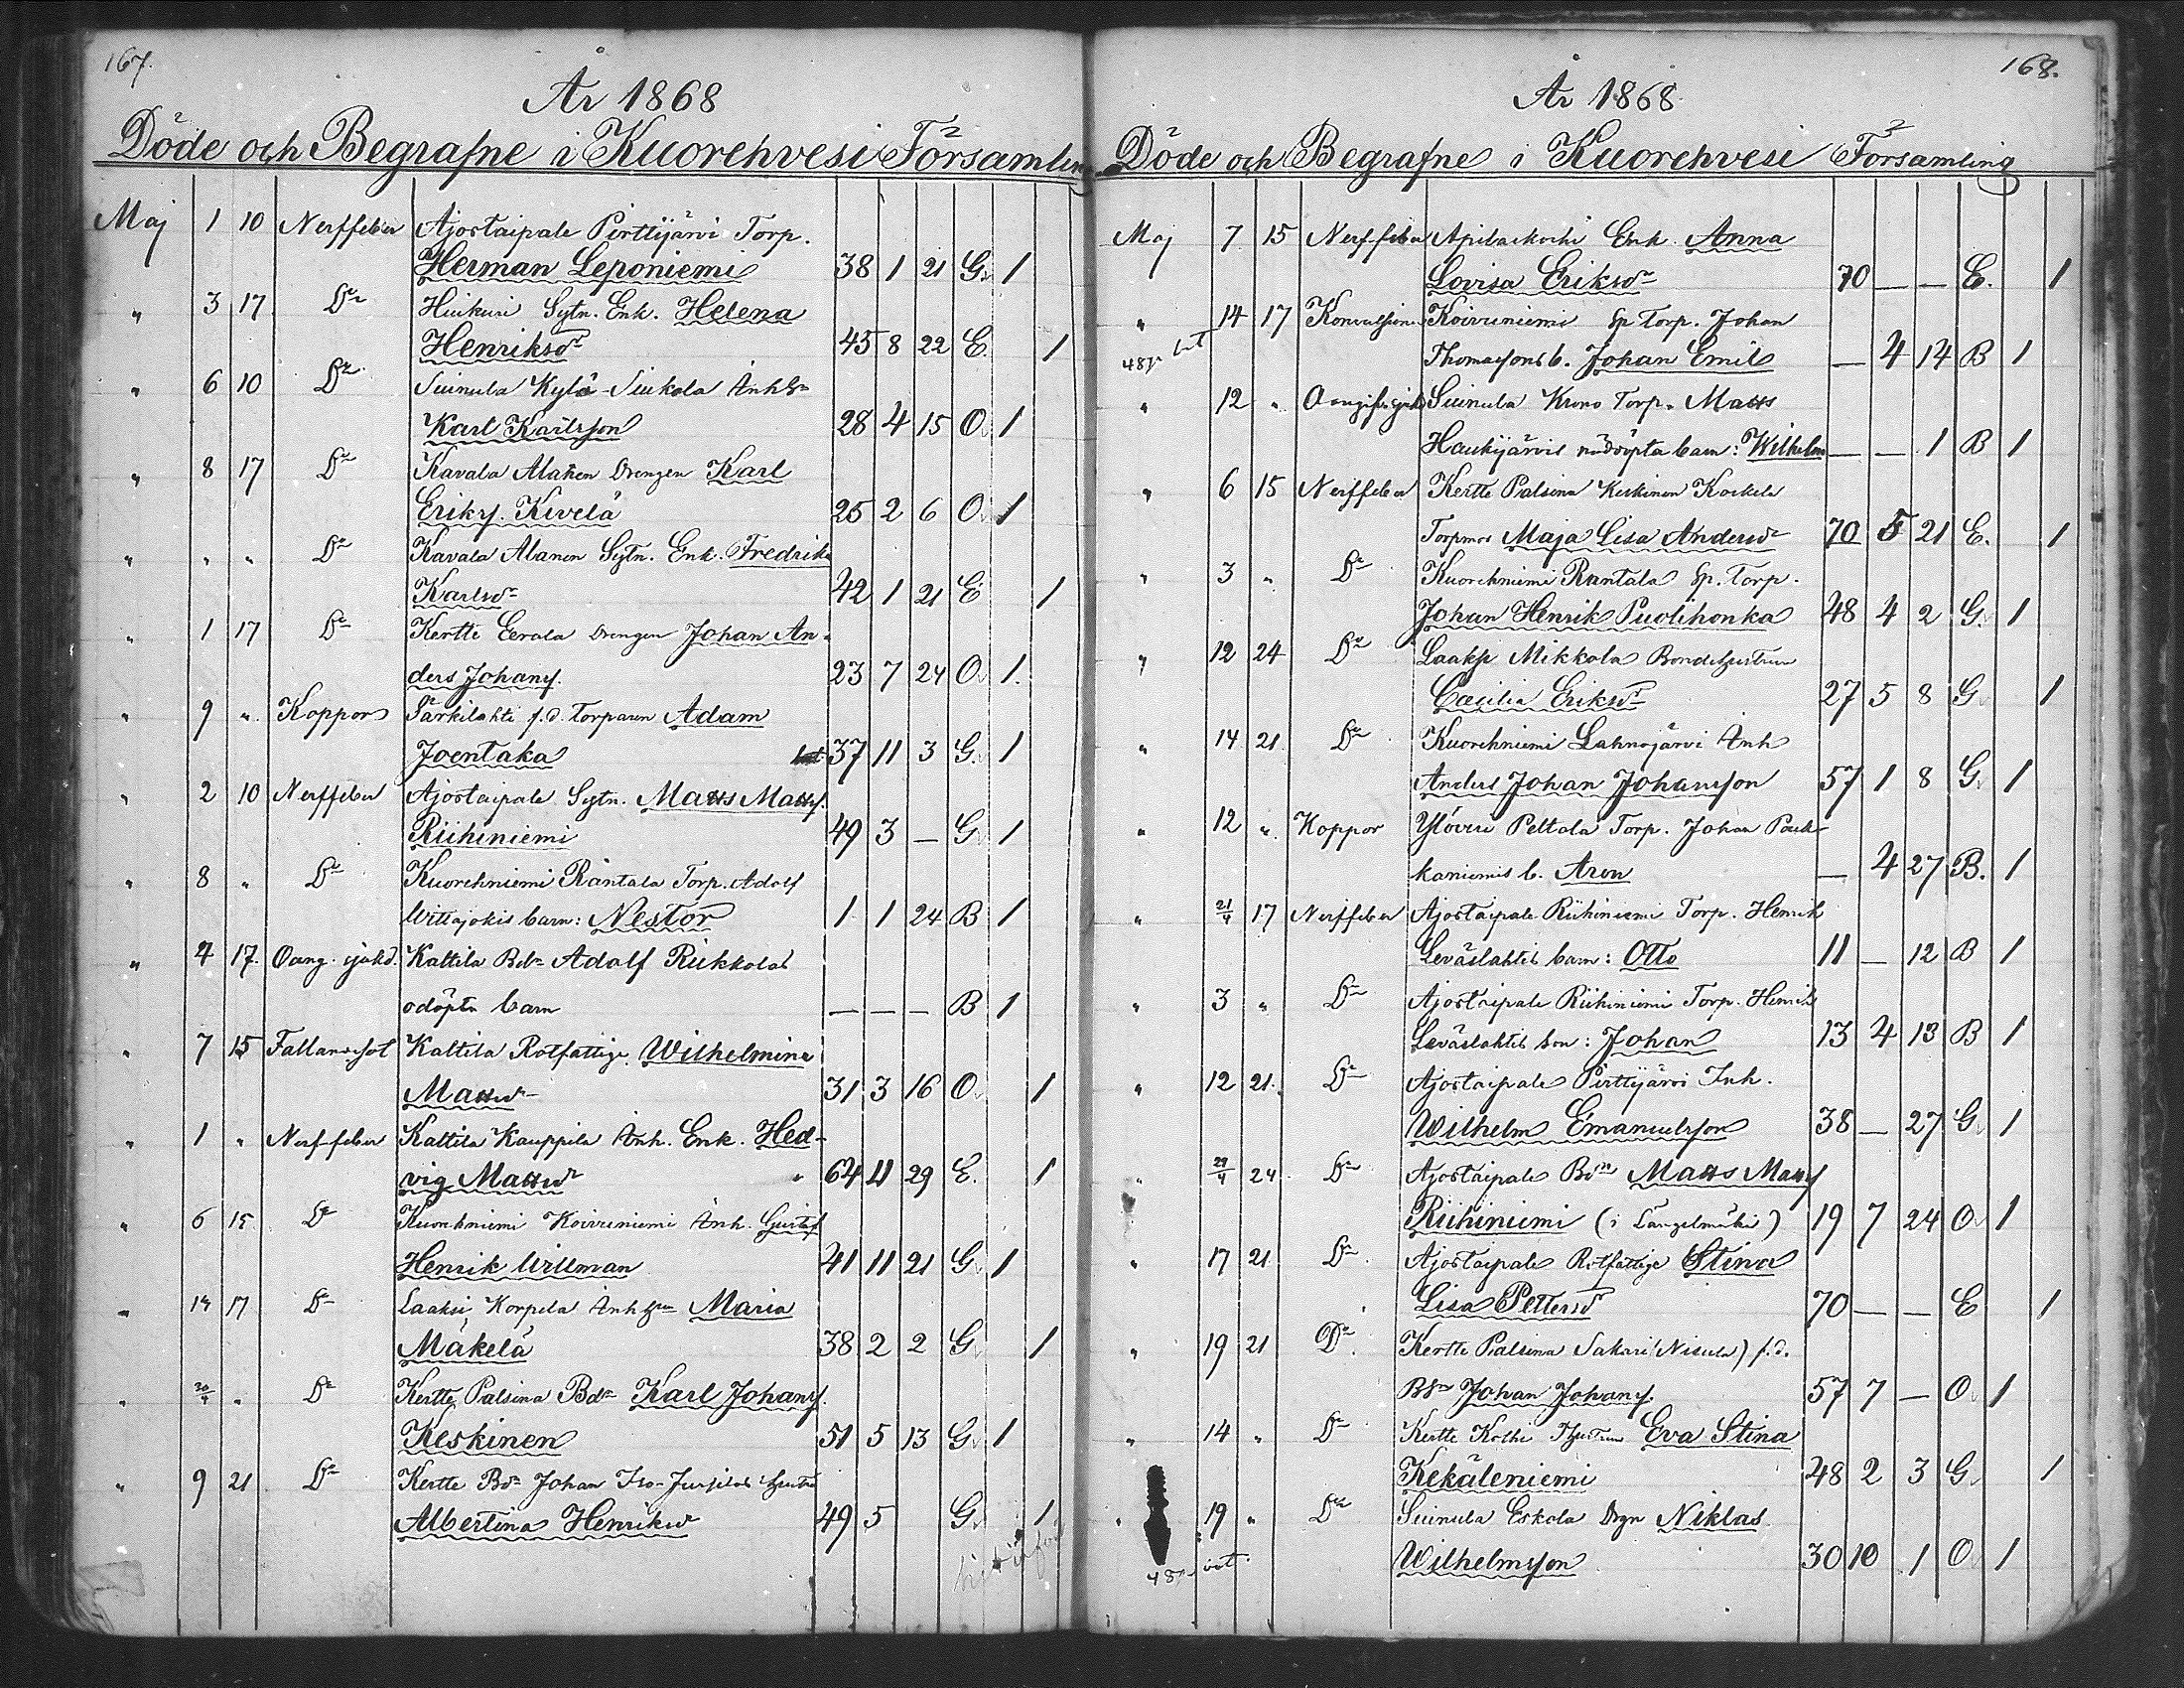 167.
År 1868
Döde och Begrafne i Kuorehvesi Församling
Maj 1 10 Nerffeber Ajostaipale Pirttijärvi Torp.
Herman Leponiemi 38 1 21 G. 1
" 3 17 Do Huikuri Sytn. Enk. Helena
Henriksdr 45 8 22 E. 1
" 6 10 Do Suinula Kylä-Siukola Inhs
Karl Karlsson 28 4 15 O. 1
" 8 17 Do Kavala Alanen Drengen Karl
Eriks. Kivelä 25 2 6 O. 1
" " " Do Kavala Alanen Sytn. Enk. Fredrika
Karlsdr 42 1 21 E 1
" 1 17 Do Kertte Eerola Drengen Johan An-
ders Johans. 23 7 24 O. 1.
" 9 " Koppor Särkilahti f.d. Torparen Adam
Joentaka 37 11 3 G. 1
" 2 10 Nerffeber Ajostaipale Sytn. Matts Matts.
Riihiniemi 49 3 — G. 1
" 8 " Do Kuorehniemi Rantala Torp. Adolf
Wittajokis barn: Nestor 1 1 24 B 1
" 4 17. Oang. sjukd. Kattila Bdn Adolf Riikkolas
odöpta barn — — — B 1
" 7 15 Fallandesot Kattila Rotfattige Wilhelmina
Mattsdr 31 3 16 O. 1
" 1 " Nerffeber Kattila Kauppila Inh. Enk. Hed-
vig Mattsdr 64 11 29 E. 1
" 6 15 Do Kuorehniemi Koivuniemi Inh. Gustaf
Henrik Willman 41 11 21 G. 1
" 14 17 Do Laaksi, Korpela Inh Maria
Mäkelä 38 2 2 G. 1
" 30/4 " Do Kertte Palsina Bdn Karl Johans.
Keskinen 51 5 13 G. 1
" 9 21 Do Kertte Bdn Johan Iso-Jussilas hustru
Albertina Henriksdr 49 5 G. 1
168.
År 1868
Döde och Begrafne i Kuorehvesi Församling
Maj 7 15 Nerffeber Enk. Anna
Lovisa Eriksdr 70 — — E. 1
" 14 17 Konvulsion Koivuniemi Sp Torp. Johan
Thomassons b. Johan Emil — 4 14 B 1
" 12 " Oangifn sjukd Suinula Krono Torp. Matts
Haukijärvis nöddöpta barn: Wilhelm — — 1 B 1
" 6 15 Nerffeber Kertte Palsina Keskinen Koskela
Torpmor Maja Lisa Andersdr 70 5 21 E. 1
" 3 " Do Kuorehniemi Rantala Sp. Torp.
Johan Henrik Puolihonka 48 4 2 G. 1
" 12 24 Do Laaksi Mikkola Bondehustrun
Cæcilia Eriksdr 27 5 8 G. 1
" 14 21. Do Kuorehniemi Lahnajärvi Inh
Anders Johan Johansson 57 1 8 G. 1
" 12 " Koppor Ylöven Peltola Torp. Johan Pauk-
kaniemis b. Aron — 4 27 B. 1
" 21/4 17 Nerffeber Ajostaipale Riihiniemi Torp. Henrik
Leväslahtis barn: Otto 11 — 12 B 1
" 3 " Do Ajostaipale Riihiniemi Torp. Henrik
Leväslahtis son: Johan 13 4 13 B 1
" 12 21. Do Ajostaipale Pirttijärvi Inh.
Wilhelm Emanuelsson 38 — 27 G. 1
" 29/4 24 Do Ajostaipale Bdn Matts Matts
Riihiniemi (i Längelmäki) 19 7 24 O. 1
" 17 21 Do Ajostaipale Rotfattige Stina
Lisa Pettersdr 70 — — E 1
" 19 21 Do. Kertte Palsina Sakari (Nisula) f.d.
Bdn Johan Johans. 57 7 — O. 1
" 14 " Do Kertte Koski Hustrun Eva Stina
Kekäleniemi 48 2 3 G. 1
" 19 " Do Suinula Eskola Drgn Niklas
Wilhelmsson 30 10 1 O. 1